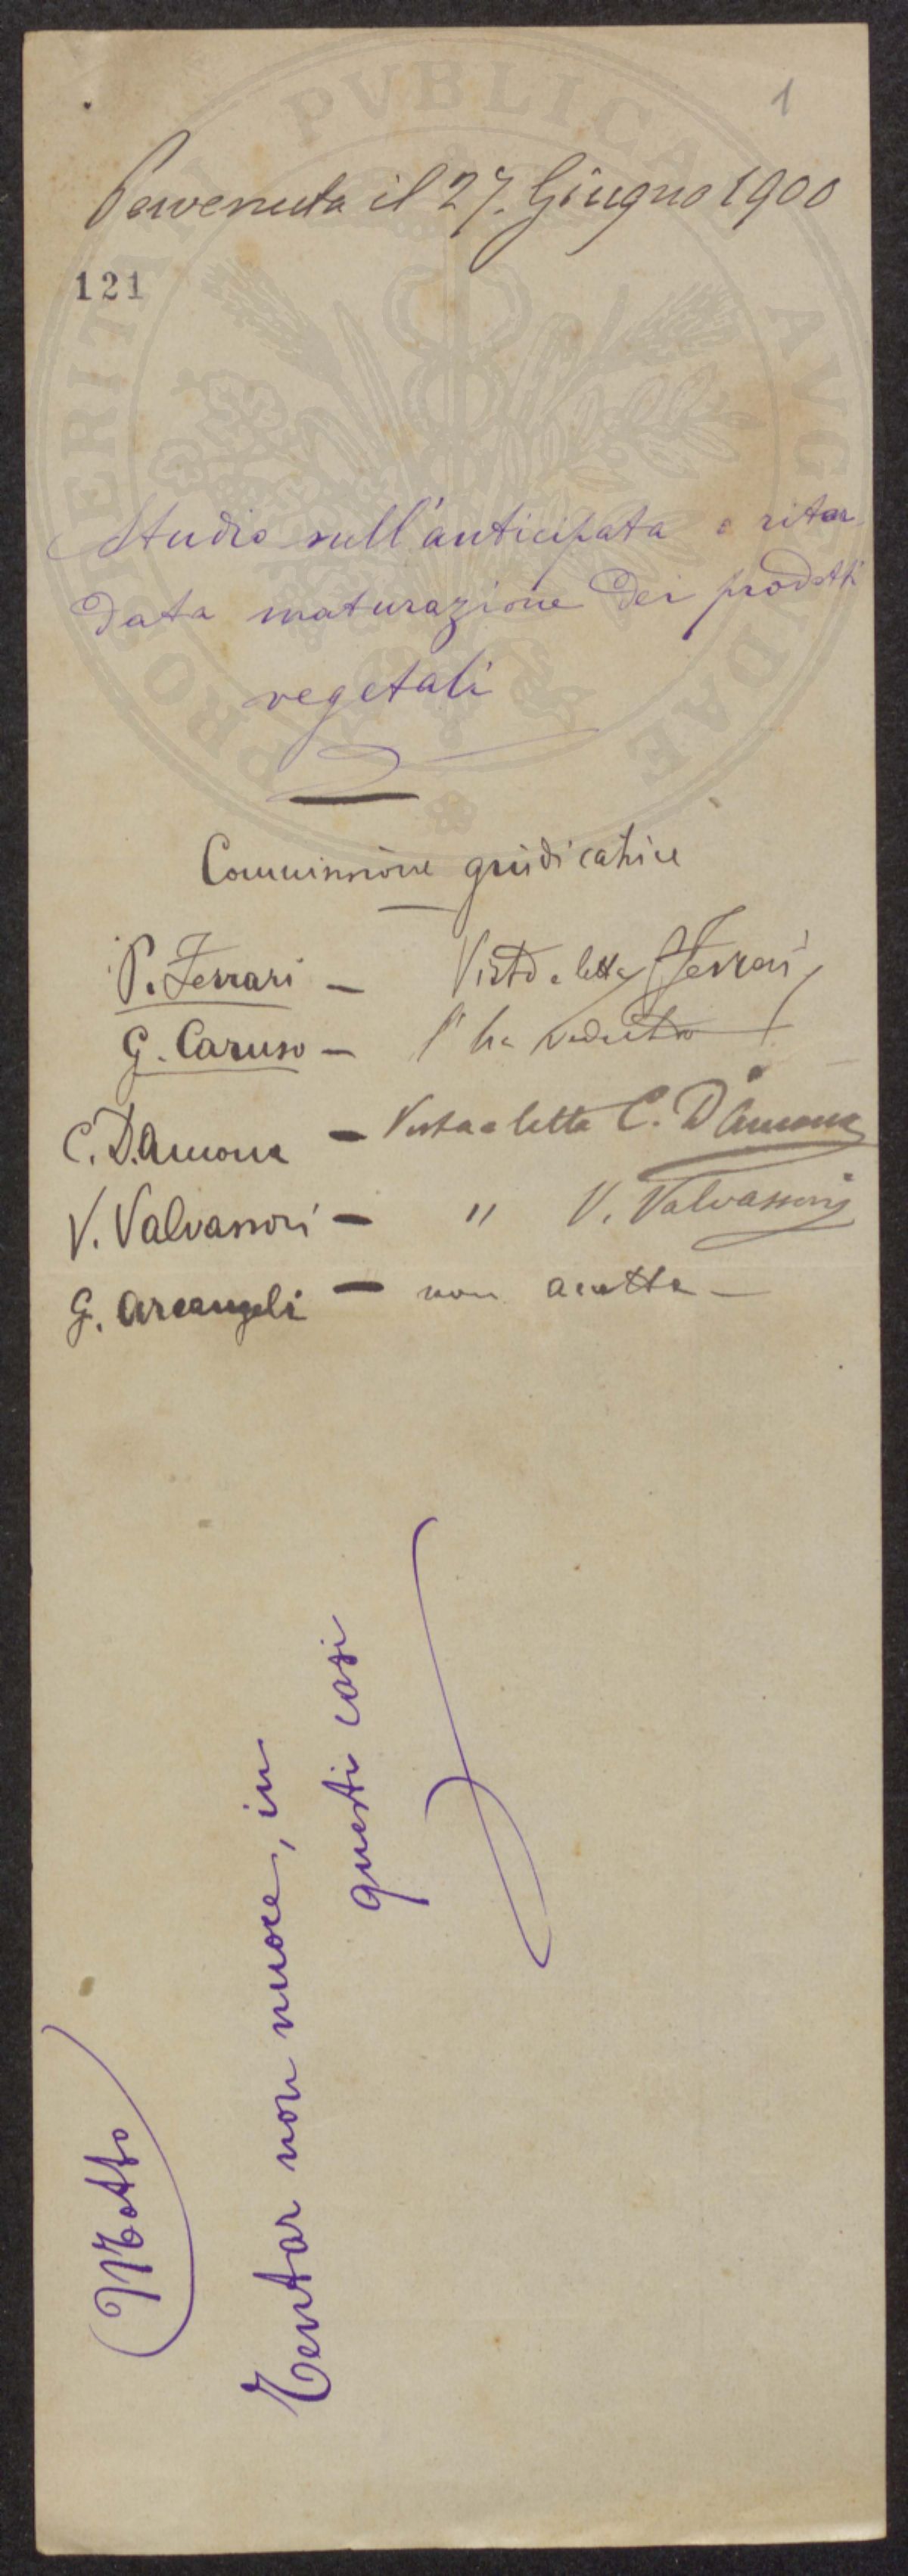 1
Pervenuta il 27. Giugno 1900
121
PROSPERITATI PVBLICAE AVGENDAE
Studio sull'anticipata e ritar
data maturazione dei prodotti
vegetali
Commissione giudicatrice
P. Ferrari – Visto e letto P Ferrari
G. Caruso – l'ha veduto
C. D'Ancona – Vista e letta C. D'Ancona
V. Valvassori – " V. Valvassori
G. Arcangeli – non accetta –
Motto
Tentar non nuoce, in
questi casi